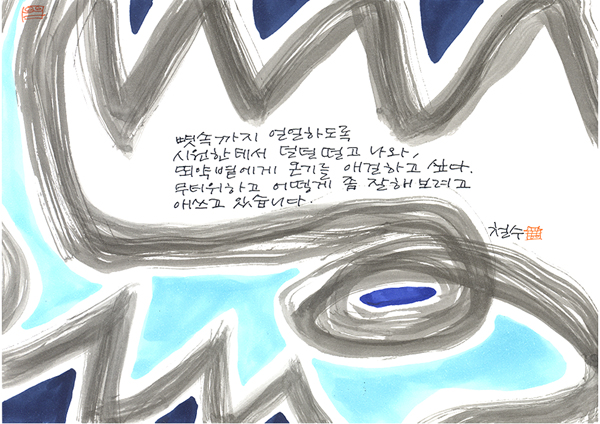 뼛속까지 얼얼하도록
시원한데서 덜덜 떨고 나와,
뙤약볕에게 온기를 애걸하고 섰다.
무더위하고 어떻게 좀 잘해보려고
애쓰고 있습니다.
철수